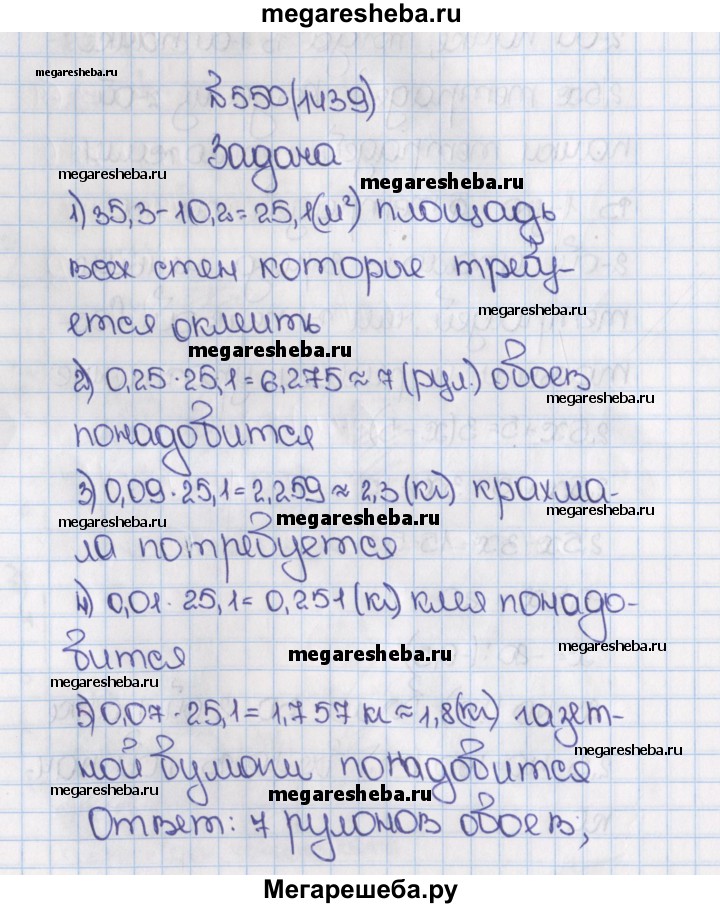 megaresheba.ru
megaresheba.ru
№550(1439)
Задача
megaresheba.ru
megaresheba.ru
1) 35,3-10,2=25,1(м²) площадь
всех стен которые требу-
megaresheba.ru
ется оклеить
megaresheba.ru
2) 0,25·25,1=6,275≈7 (рул.) обоев
megaresheba.ru
понадобится
3) 0,09·25,1=2,259≈2,3(кг) крахма-
megaresheba.ru
megaresheba.ru
megaresheba.ru
ла потребуется
4) 0,01·25,1=0,251(кг) клея понадо-
megaresheba.ru
бится
megaresheba.ru
megaresheba.ru
5) 0,07·25,1=1,757 кг≈1,8(кг) газет-
megaresheba.ru
ной бумаги понадобится
megaresheba.ru
megaresheba.ru
Ответ: 7 рулонов обоев;
Мегарешеба.ру